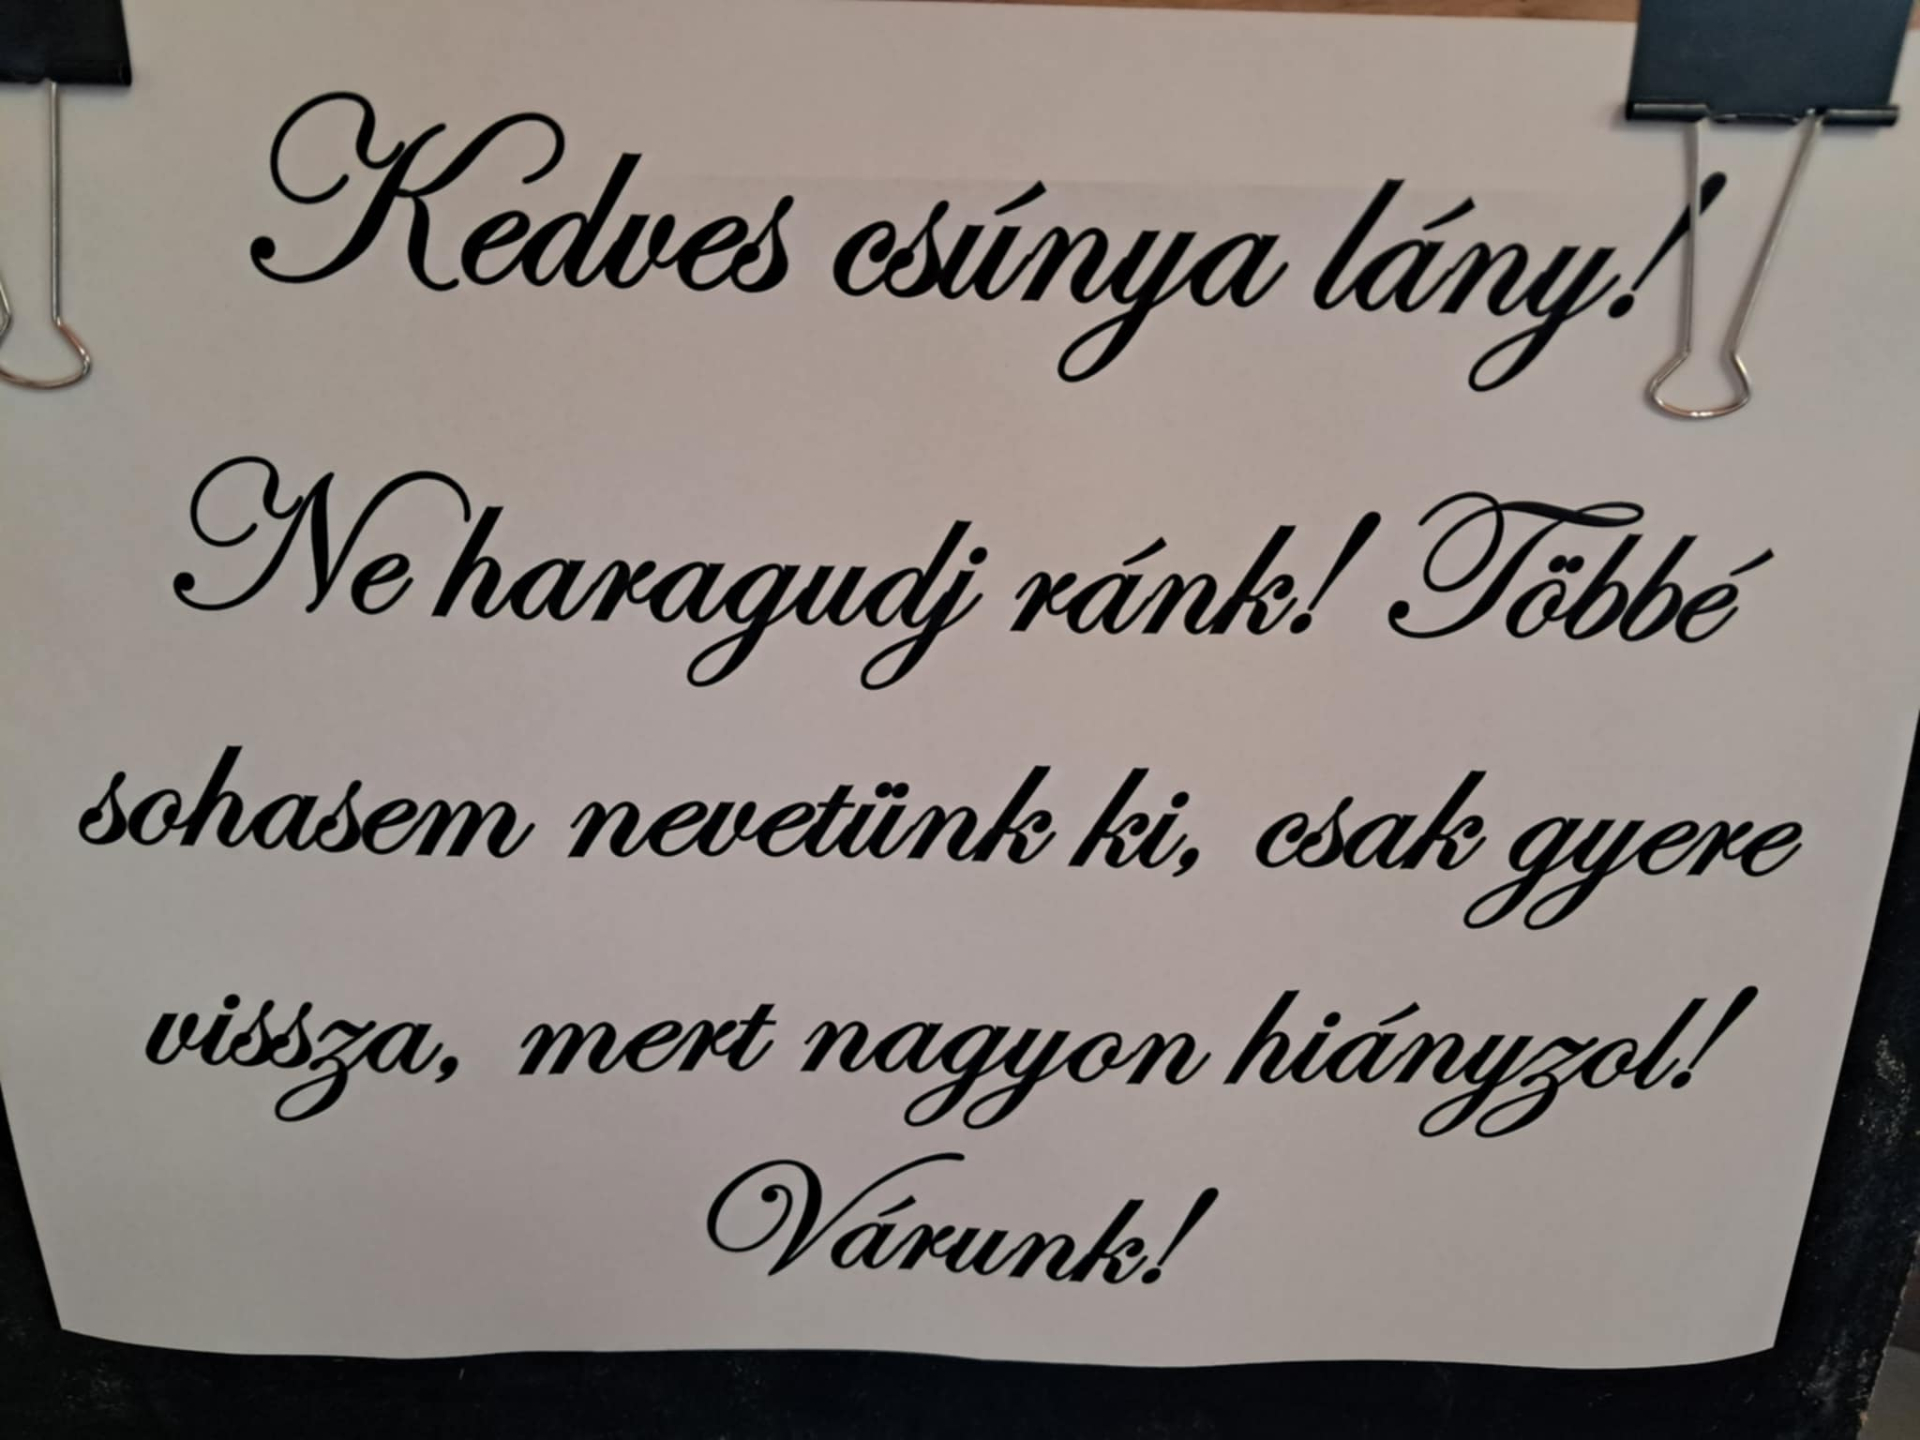 Kedves csúnya lány!
Ne haragudj ránk! Többé
sohasem nevetünk ki, csak gyere
vissza, mert nagyon hiányzol!
Várunk!